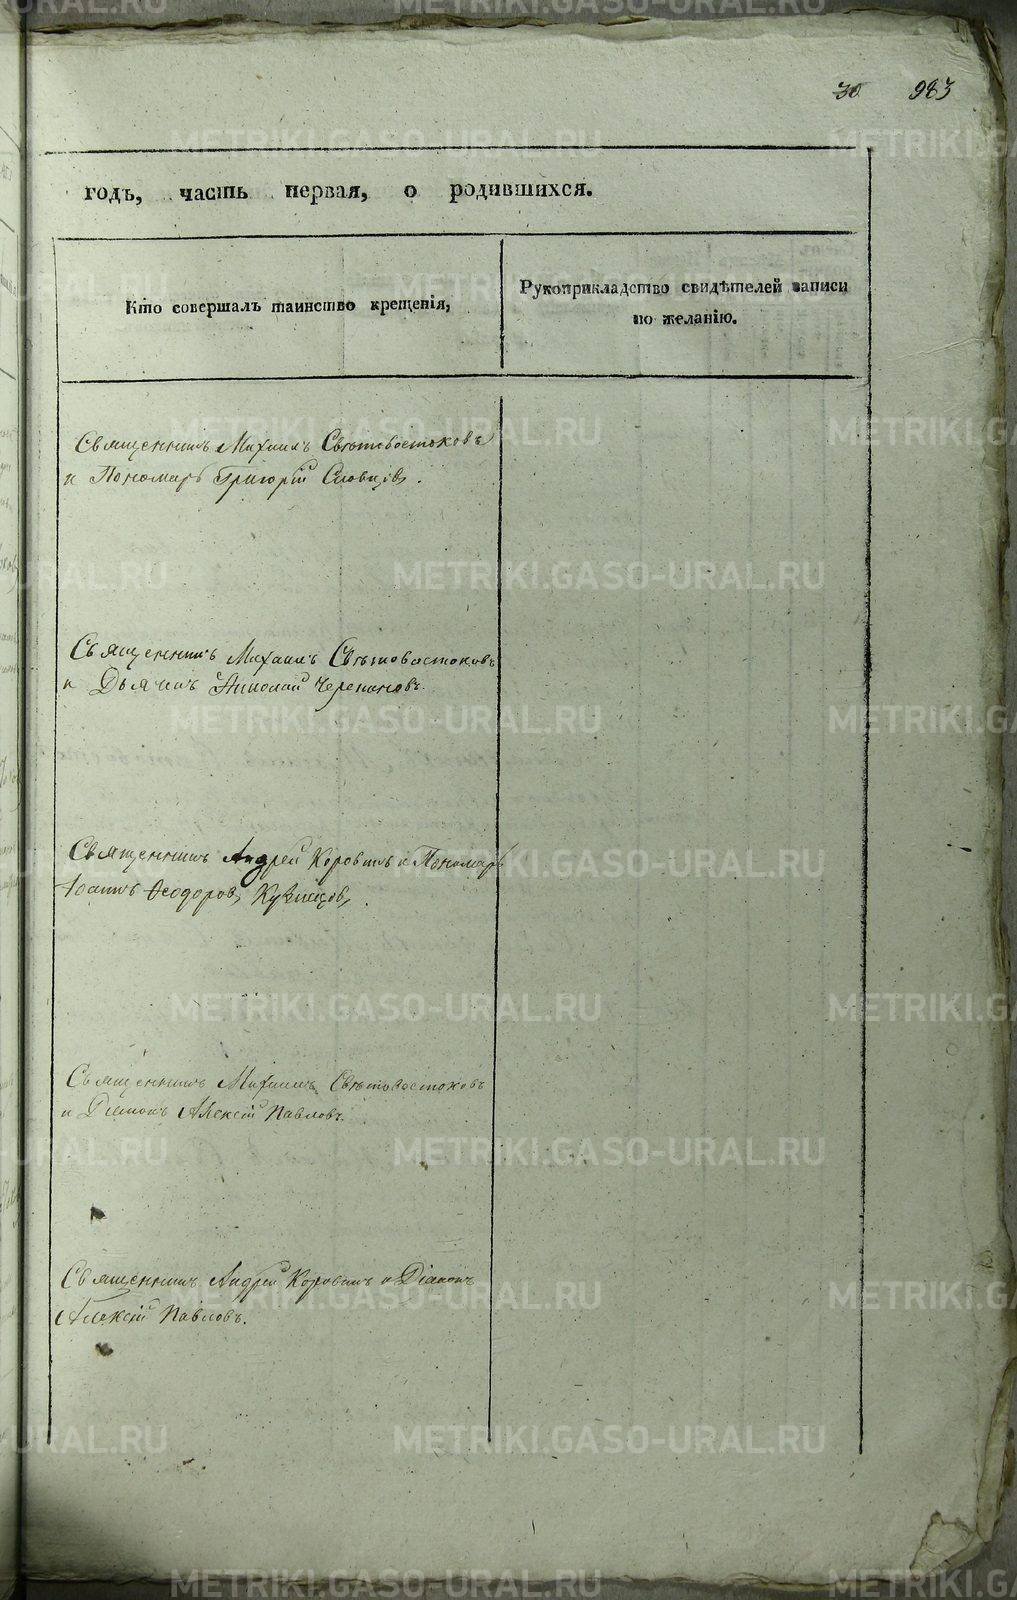 30 983
годъ, часть первая, о родившихся.
Кто совершалъ таинство крещенія,
Рукоприкладство свидѣтелей записи
по желанію.
Священникъ Михаилъ Свѣтовостоковъ
и Пономарь Григорій Словцовъ.
Священникъ Михаилъ Свѣтовостоковъ
и Дьячекъ Николай Черепановъ.
Священникъ Андрей Коровинъ и Пономарь
Іоаннъ Ѳеодоровъ Кузнецовъ.
Священникъ Михаилъ Свѣтовостоковъ
и Діаконъ Алексій Павловъ.
Священникъ Андрей Коровинъ и Діаконъ
Алексій Павловъ.
METRIKI.GASO-URAL.RU